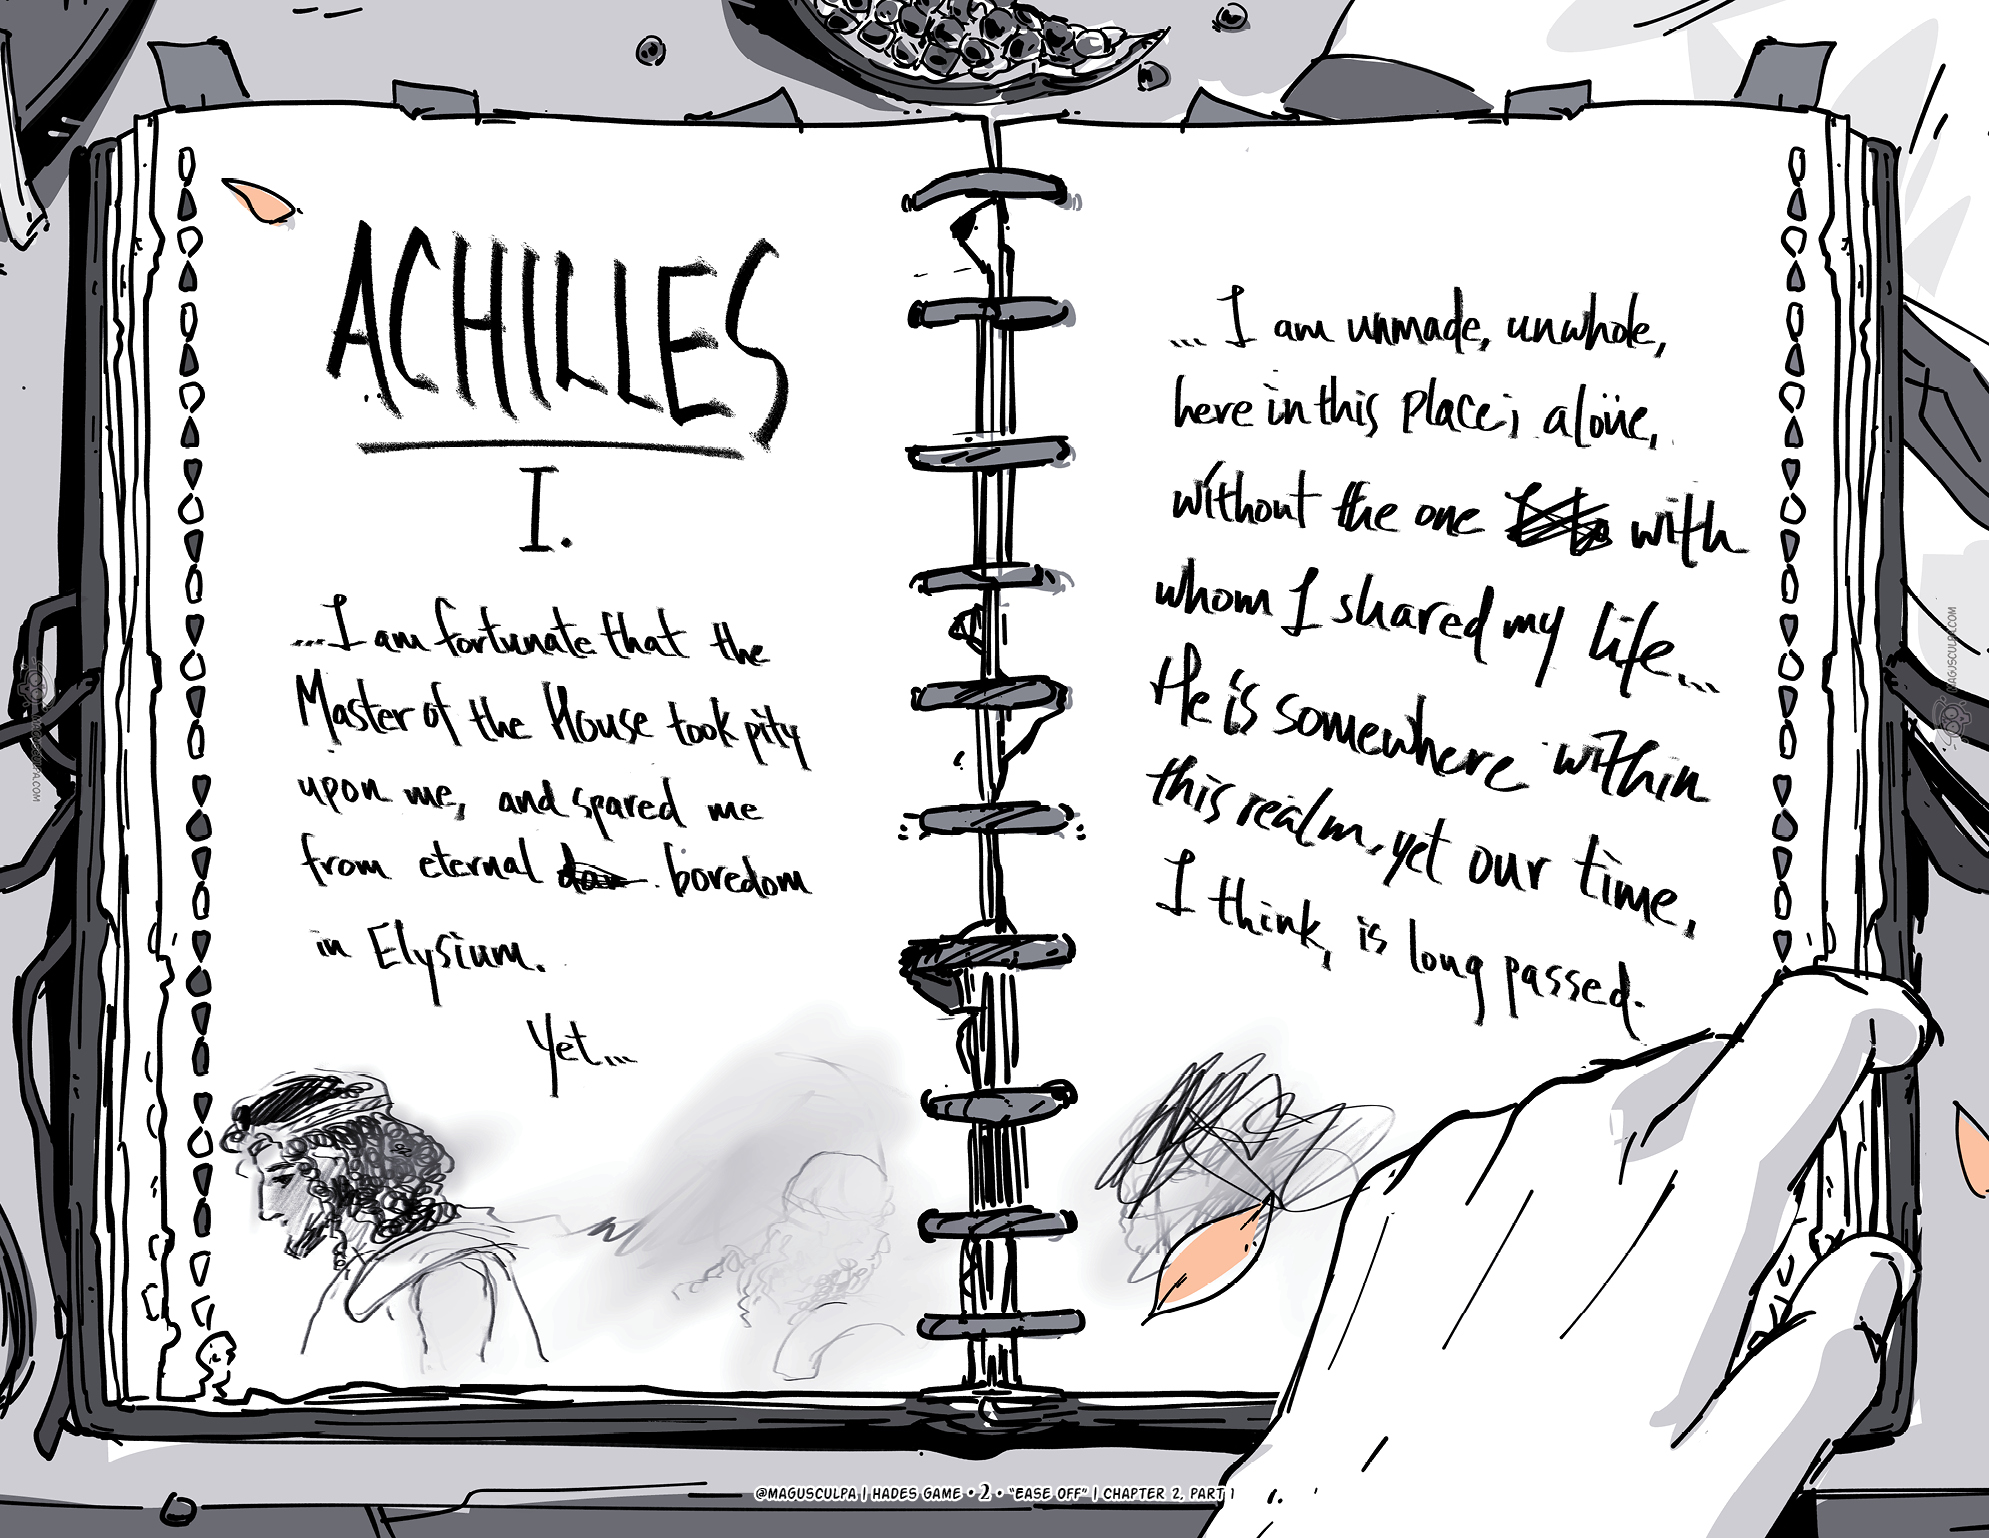 ACHILLES
I.
...I am fortunate that the
Master of the House took pity
upon me, and spared me
from eternal boredom
in Elysium.
Yet...
...I am unmade, unwhole,
here in this place; alone,
without the one with
whom I shared my life...
He is somewhere within
this realm, yet our time,
I think, is long passed.
@MAGUSCULPA | HADES GAME • 2 • "EASE OFF" | CHAPTER 2, PART 1
MAGUSCULPA.COM
MAGUSCULPA.COM